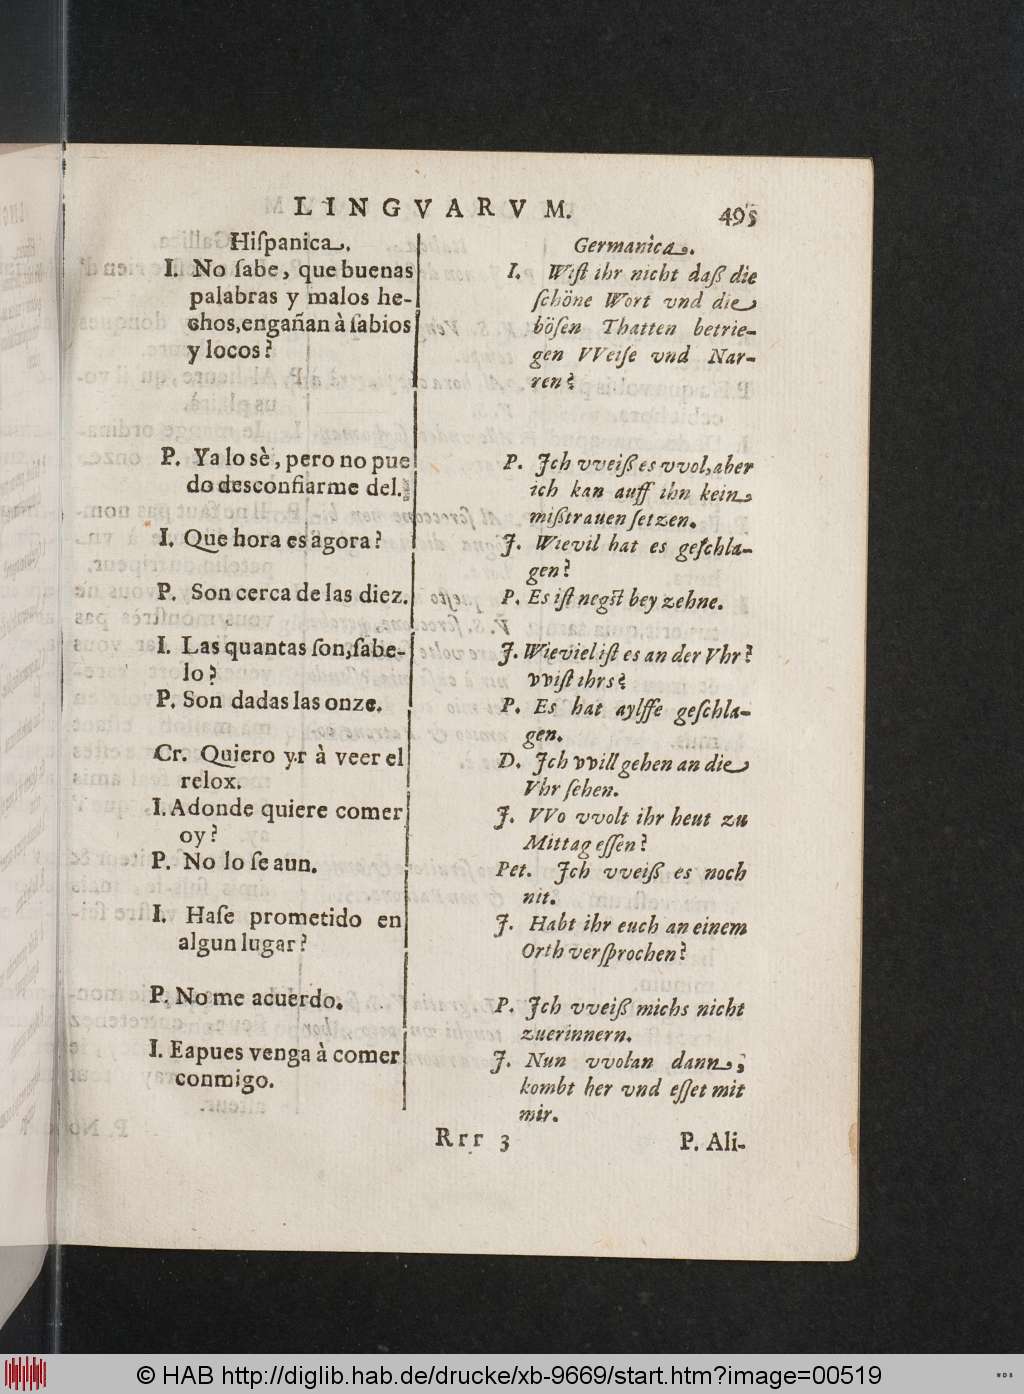 LINGVARVM.
495
Hiſpanica.
I. No ſabe, que buenas
palabras y malos he-
chos, engañan à ſabios
y locos?
P. Ya lo sè, pero no pue
do desconfiarme del.
I. Que hora es agora?
P. Son cerca de las diez.
I. Las quantas ſon, ſabe-
lo?
P. Son dadas las onze.
Cr. Quiero yr à veer el
relox.
I. Adonde quiere comer
oy?
P. No lo ſe aun.
I. Haſe prometido en
algun lugar?
P. No me acuerdo.
I. Eapues venga à comer
conmigo.
Germanica.
I. Wiſt ihr nicht daß die
ſchöne Wort vnd die
böſen Thatten betrie-
gen VVeiſe vnd Nar-
ren?
P. Jch vveiß es vvol, aber
ich kan auff ihn kein
mißtrauen ſetzen.
J. Wievil hat es geſchla-
gen?
P. Es iſt negſt bey zehne.
J. Wieviel iſt es an der Vhr?
vviſt ihrs?
P. Es hat aylffe geſchla-
gen.
D. Jch vvill gehen an die
Vhr ſehen.
J. VVo vvolt ihr heut zu
Mittag eſſen?
Pet. Jch vveiß es noch
nit.
J. Habt ihr euch an einem
Orth verſprochen?
P. Jch vveiß michs nicht
zuerinnern.
J. Nun vvolan dann,
kombt her vnd eſſet mit
mir.
Rrr 3
P. Ali-
© HAB http://diglib.hab.de/drucke/xb-9669/start.htm?image=00519